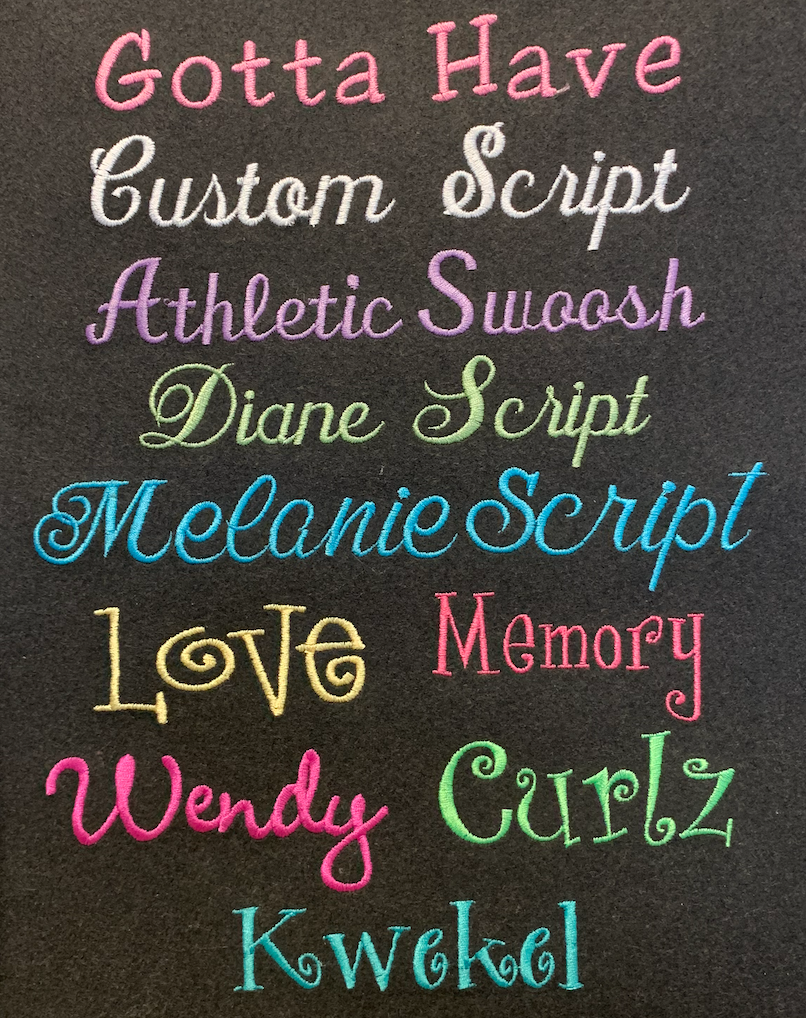 Gotta Have
Custom Script
Athletic Swoosh
Diane Script
Melanie Script
Love Memory
Wendy Curlz
Kwekel